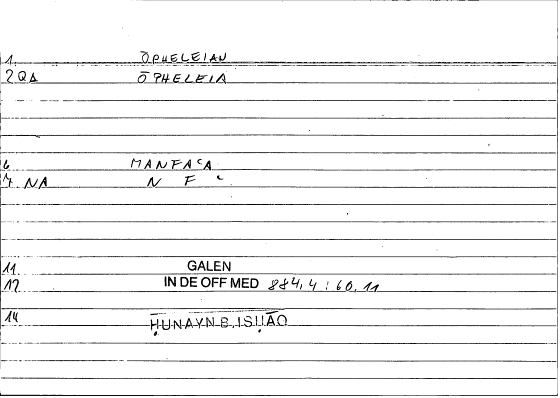 1. ŌPHELEIAN
2 QA ŌPHELEIA
6 MANFAʿA
7 NA N F ʿ
11 GALEN
12 IN DE OFF MED 884,4 : 60,11
14 ḤUNAYN B. ISḤĀQ